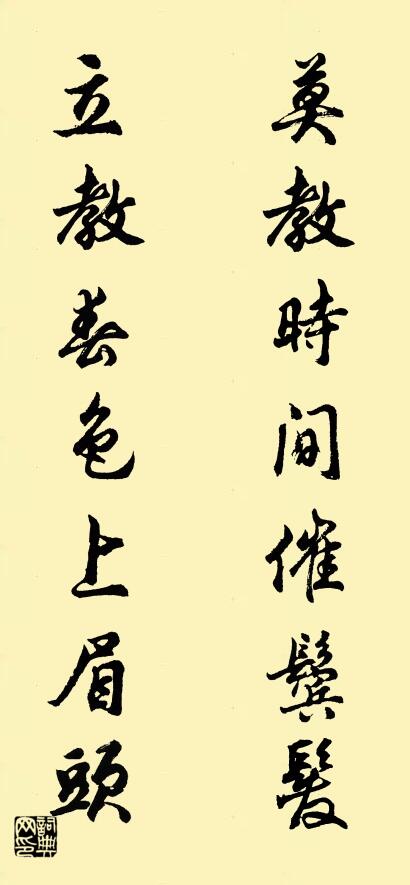 莫教時间催鬓髮
立教春色上眉頭
詞典网印